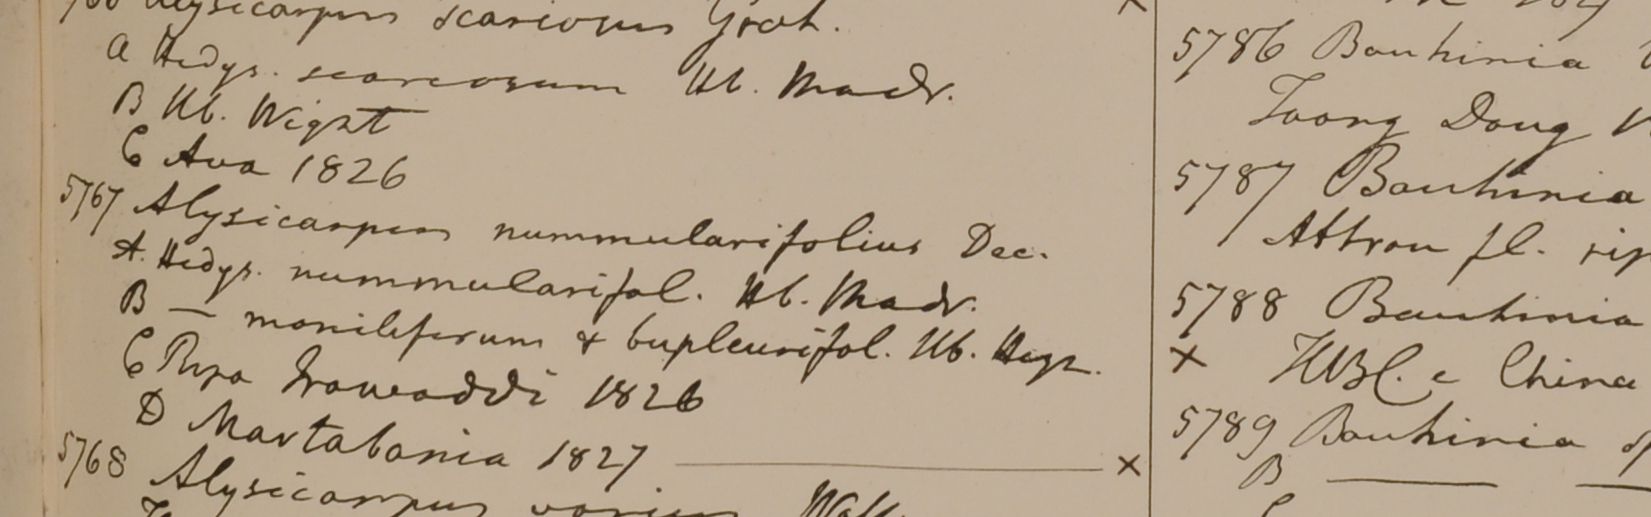 Alysicarpus scariosus Grah.
a Hedys. scareosum Hb. Madr.
B Hb. Wight
C Ava 1826
5767 Alysicarpus nummularifolius Dec.
A. Hedys. nummularifol. Hb. Madr.
B — moniliferum & bupleurifol. Hb. Heyn.
C Ripa Irawaddi 1826
D Martabania 1827 ×
5768 Alysicarpus varius Wall.
5786 Bauhinia
Taong Dong
5787 Bauhinia
Attran fl. rip
5788 Bauhinia
× HBC. e China
5789 Bauhinia
B —